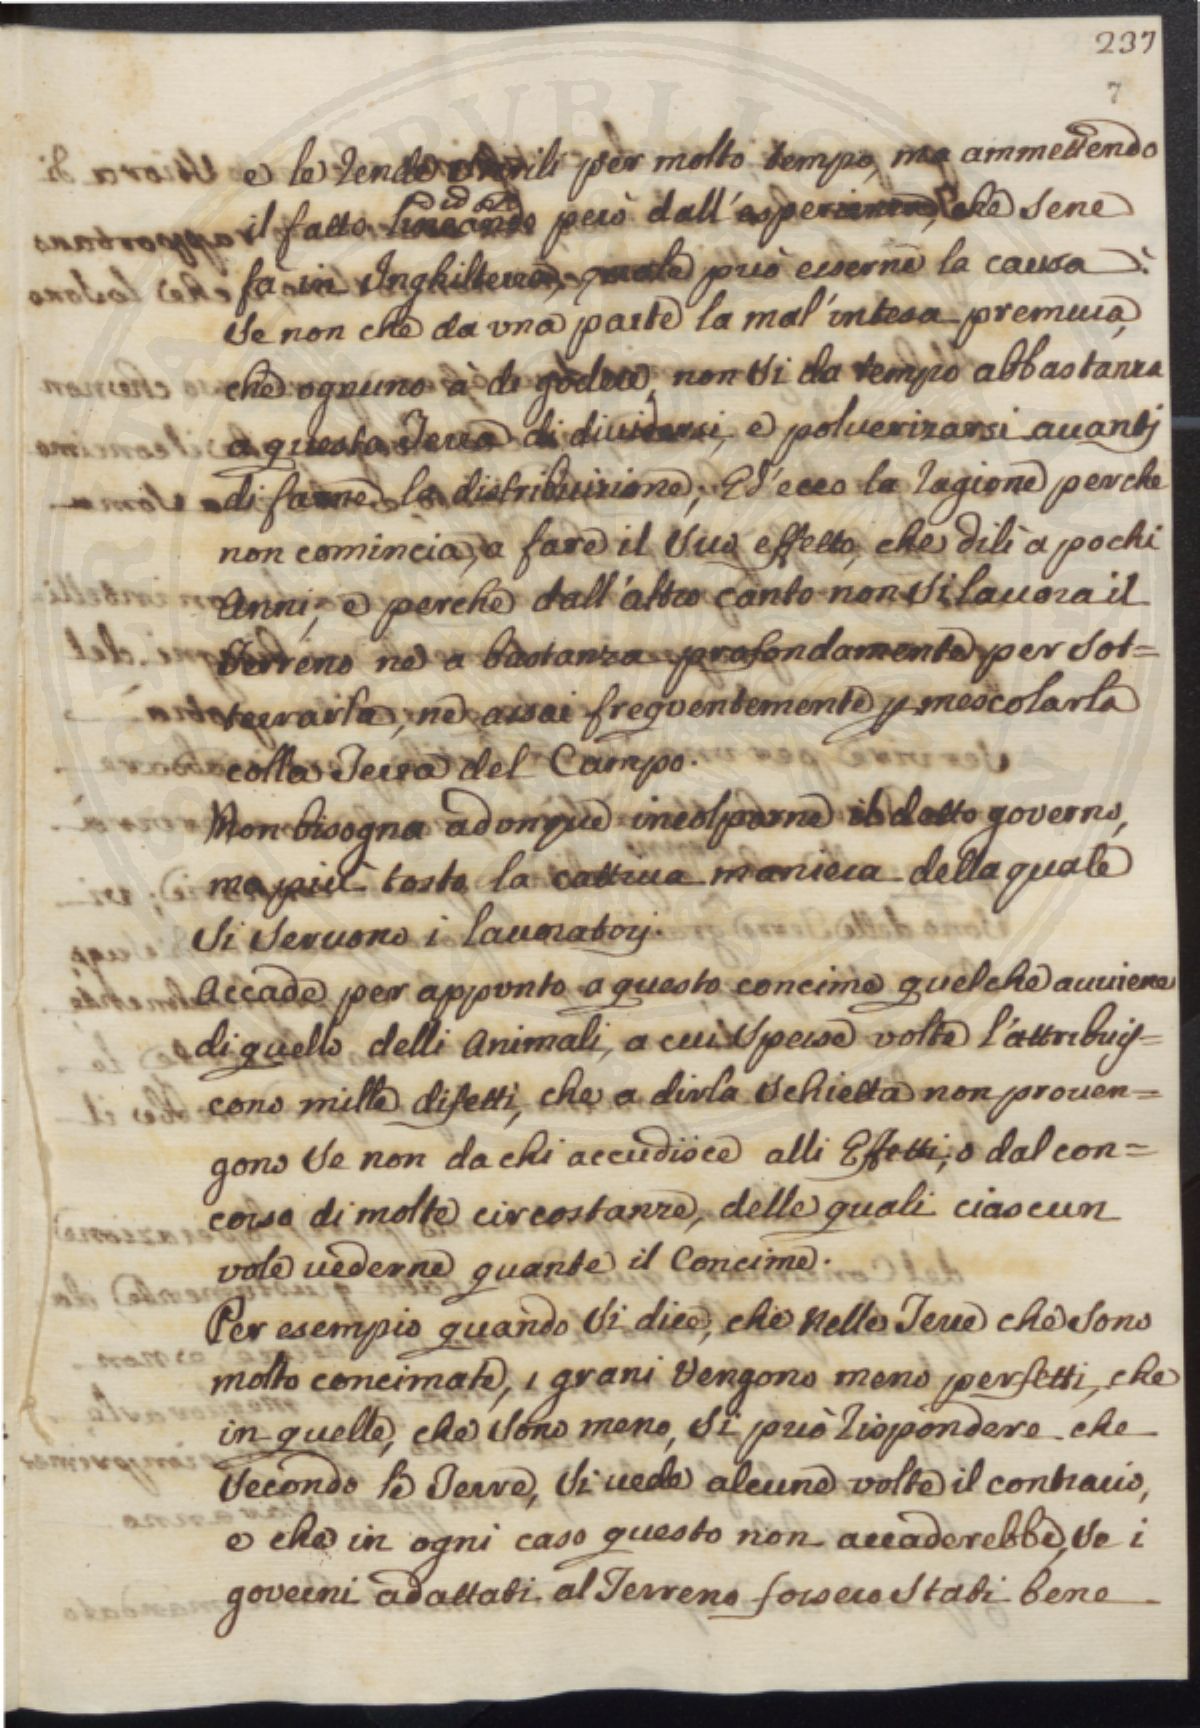 237
7
e le rende sterili per molto tempo, ma ammettendo
il fatto però dall'esperienza, che sene
fà in Inghilterra, quale può esserne la causa?
Se non che da una parte la mal'intesa premura,
che ognuno à di godere, non si da tempo abbastanza
a questa Terra di dividersi, e polverizarsi avantj
di farne la distribuizione; Ed'ecco la ragione perche
non comincia a fare il suo effetto, che di lì a pochi
Anni, e perche dall'altro canto non si lavora il
Terreno ne a bastanza profondamente per sot=
terrarla, ne assai freqventemente p mescolarla
colla Terra del Campo.
Non bisogna adonque incolparne il detto governo,
ma più tosto la cattiva maniera della quale
si servono i lavoratorj.
Accade per appvnto a questo concime quel che avviene
di quello delli Animali, a cui spesse volte l'attribuis=
cono mille difetti, che a dirla schietta non proven=
gono se non da chi accudisce alli Effetti, o dal con=
corso di molte circostanze, delle quali ciascun
vole vederne quante il Concime.
Per esempio quando si dice, che nelle Terre che sono
molto concimate, i grani vengono meno perfetti, che
in quelle, che sono meno, si può rispondere che
secondo le Terre, si vede alcune volte il contrario,
e che in ogni caso questo non accaderebbe, se i
governi adattati al Terreno fossero stati bene